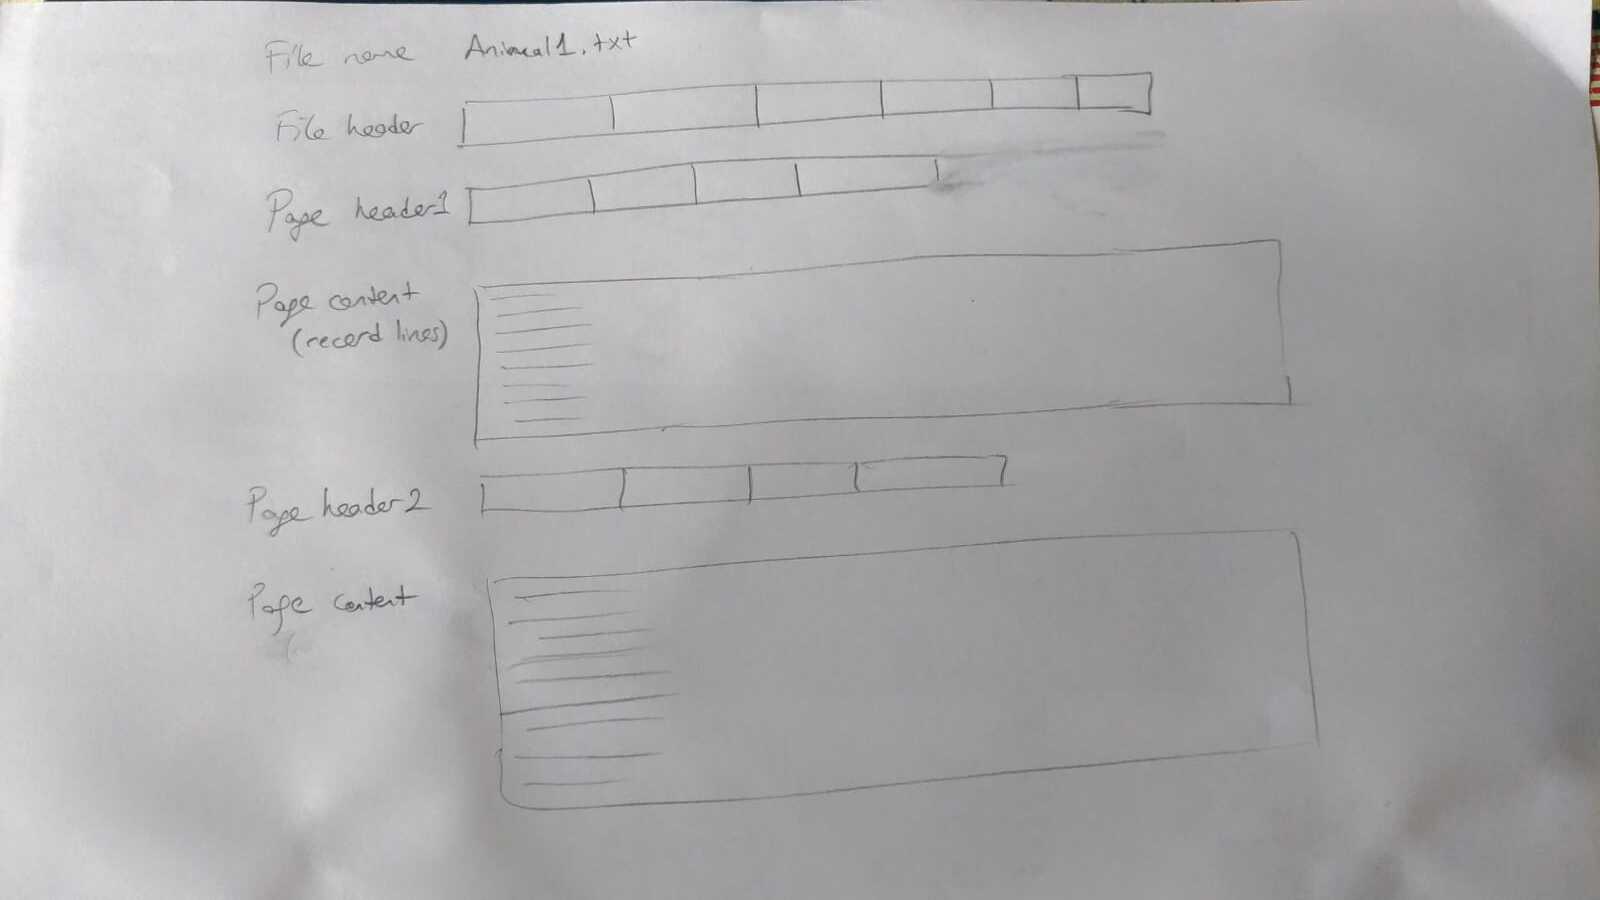 File name Animal1.txt
File header
Page header1
Page content
(record lines)
Page header2
Page content